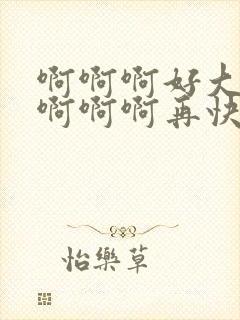 啊啊啊好大
啊啊啊再快
怡樂草